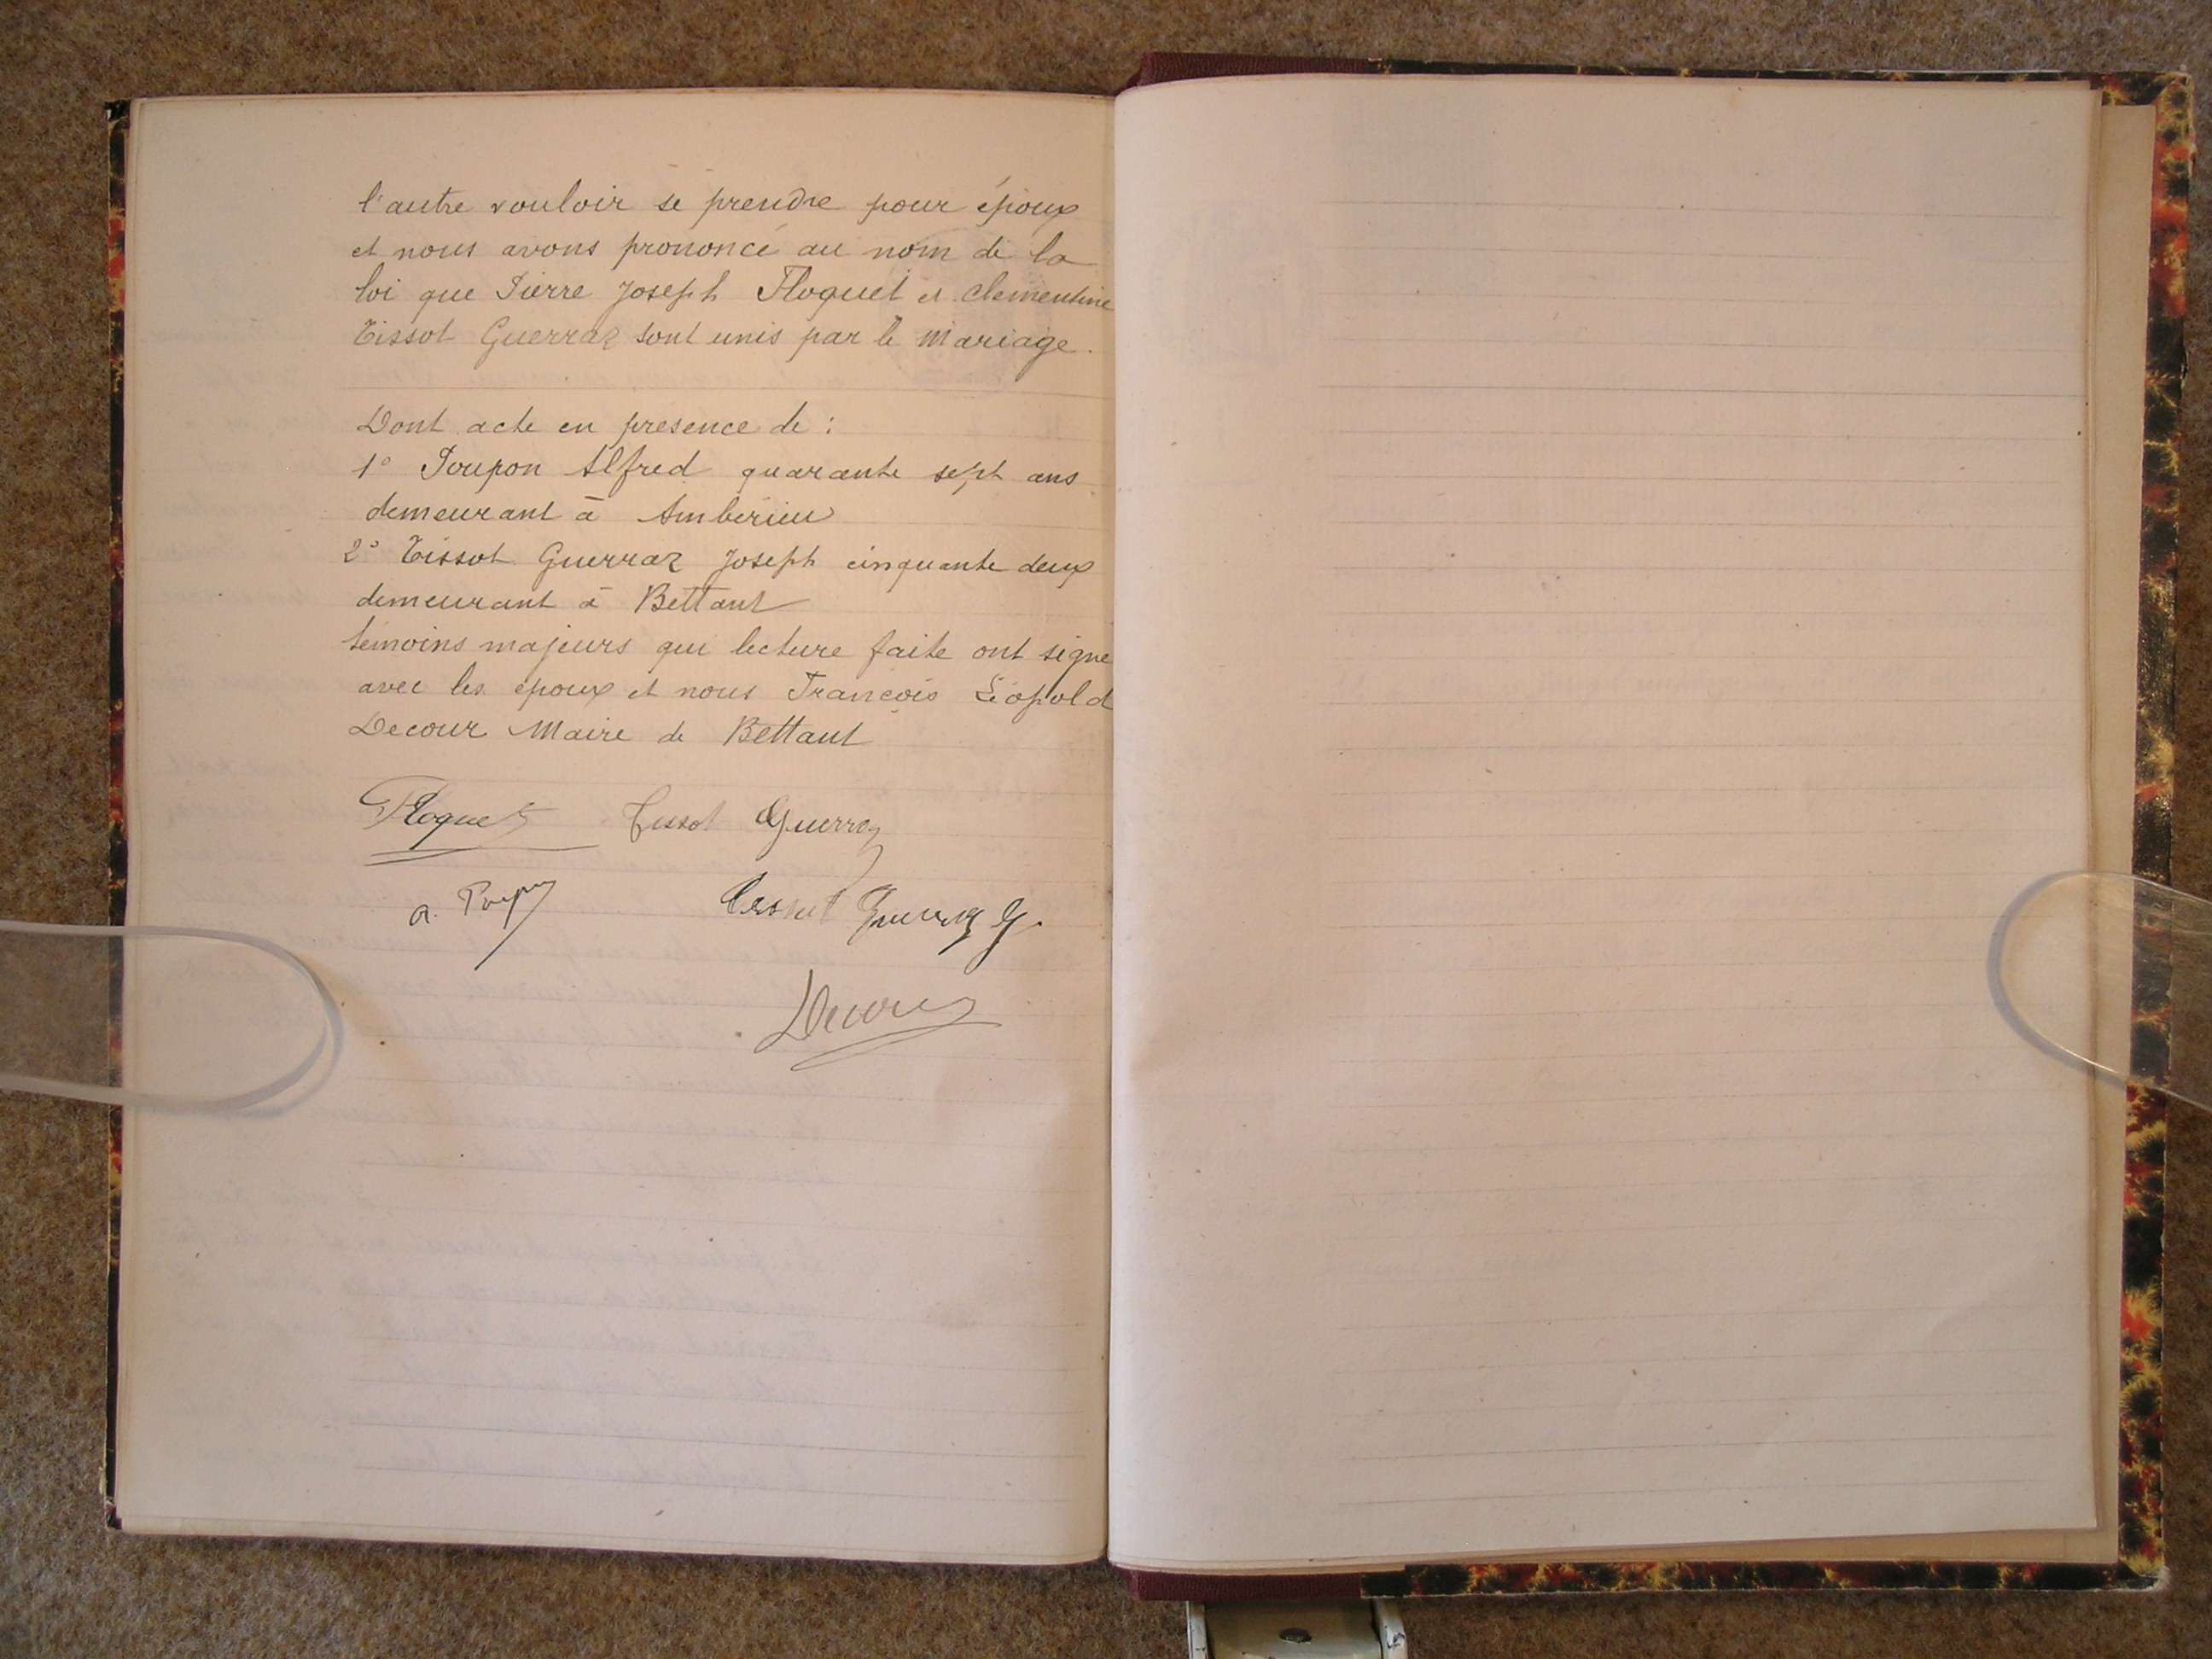 l'autre vouloir se prendre pour époux
et nous avons prononcé au nom de la
loi que Pierre Joseph Floquet et Clementine
Tissot Guerraz sont unis par le mariage.
Dont acte en presence de :
1° Poupon Alfred quarante sept ans
demeurant à Ambérieu
2° Tissot Guerraz Joseph cinquante deux
demeurant à Bettant
témoins majeurs qui lecture faite ont signé
avec les époux et nous François Léopold
Decour Maire de Bettant
Floquet Tissot Guerraz
a. Poupon Tissot Guerraz J.
Decour